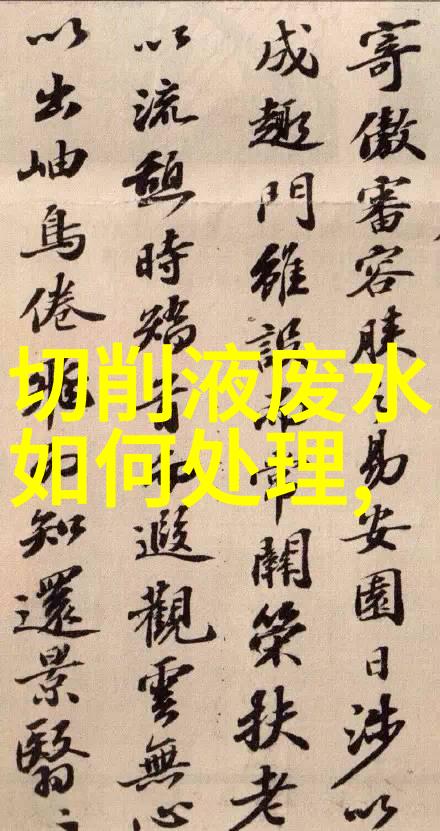 寄傲審容膝之易安園日涉以
成趣門雖設而常關策扶老
以流憩時矯首而遐觀雲無心
以出岫鳥倦飛而知還景翳
切削液废水
如何处理,